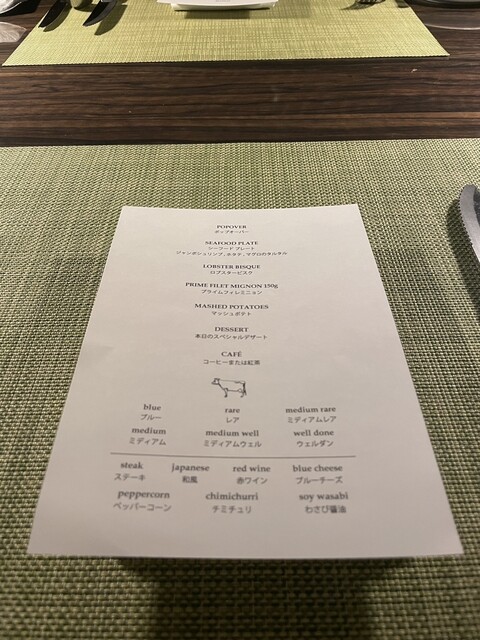 POPOVER
ポップオーバー
SEAFOOD PLATE
シーフード プレート
ジャンボシュリンプ、ホタテ、マグロのタルタル
LOBSTER BISQUE
ロブスタービスク
PRIME FILET MIGNON 150g
プライムフィレミニョン
MASHED POTATOES
マッシュポテト
DESSERT
本日のスペシャルデザート
CAFÉ
コーヒーまたは紅茶
blue rare medium rare
ブルー レア ミディアムレア
medium medium well well done
ミディアム ミディアムウェル ウェルダン
steak japanese red wine blue cheese
ステーキ 和風 赤ワイン ブルーチーズ
peppercorn chimichurri soy wasabi
ペッパーコーン チミチュリ わさび醤油